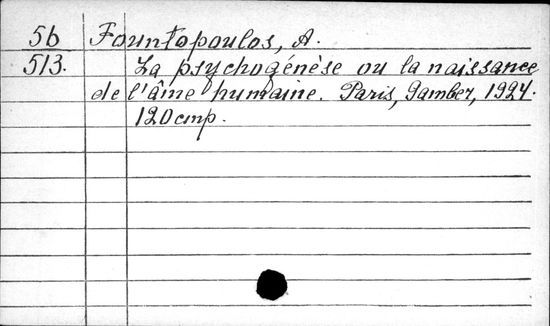 56 Fountopoulos, A.
513. La psychogénèse ou la naissance
de l'âme humaine. Paris, Gamber, 1924.
120 стр.